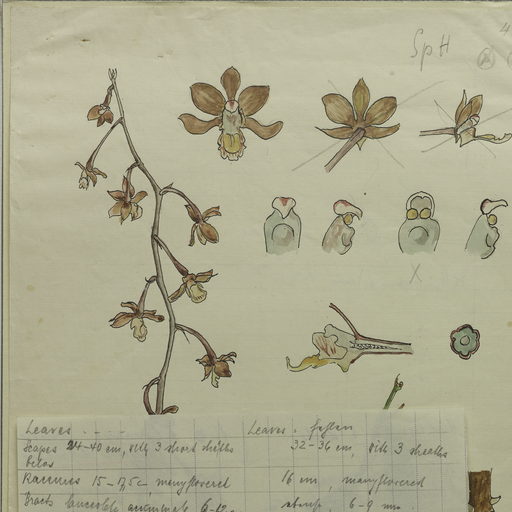 SpH
4
X
Leaves . - - - Leaves .
Scapes 24-40 cm, with 3 short sheaths 32-36 cm, with 3 sheaths
below
Racemes 15-17,5 c manyflowered 16 cm, manyflowered
Bracts lanceolate acuminate 6-12 6-9 mm.